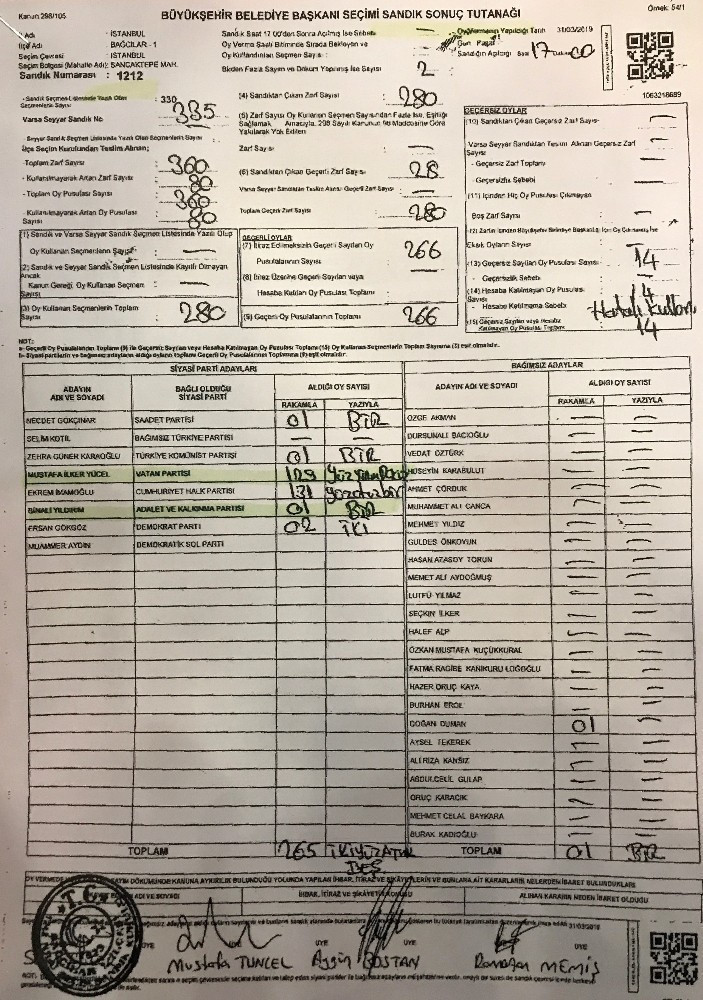 Kanun 298/105
BÜYÜKŞEHİR BELEDİYE BAŞKANI SEÇİMİ SANDIK SONUÇ TUTANAĞI
Örnek: 54/1
İl Adı : İSTANBUL
İlçe Adı : BAĞCILAR - 1
Seçim Çevresi : İSTANBUL
Seçim Bölgesi (Mahalle Adı): SANCAKTEPE MAH.
Sandık Numarası : 1212
Sandık Saat 17.00'den Sonra Açılmış İse Sebebi
Oy Verme Saati Bitiminde Sırada Bekleyen ve
Oy Kullandırılan Seçmen Sayısı
Birden Fazla Sayım ve Döküm Yapılmış İse Sayısı 2
Oy Vermenin Yapıldığı Tarih 31/03/2019
Gün Pazar
Sandığın Açılışı Saat 17 00
1063218689
- Sandık Seçmen Listesinde Yazılı Olan Seçmenlerin Sayısı : 330
335
Varsa Seyyar Sandık No
- Seyyar Sandık Seçmen Listesinde Yazılı Olan Seçmenlerin Sayısı
İlçe Seçim Kurulundan Teslim Alınan;
Toplam Zarf Sayısı : 360
- Kullanılmayarak Artan Zarf Sayısı : 80
- Toplam Oy Pusulası Sayısı : 360
- Kullanılmayarak Artan Oy Pusulası Sayısı : 80
(4) Sandıktan Çıkan Zarf Sayısı : 280
(5) Zarf Sayısı Oy Kullanan Seçmen Sayısından Fazla İse, Eşitliği
Sağlamak Amacıyla, 298 Sayılı Kanunun 98 Maddesine Göre
Yakılarak Yok Edilen
Zarf Sayısı :
(6) Sandıktan Çıkan Geçerli Zarf Sayısı : 28
Varsa Seyyar Sandıktan Teslim Alınan Geçerli Zarf Sayısı :
Toplam Geçerli Zarf Sayısı : 280
GEÇERSİZ OYLAR
(10) Sandıktan Çıkan Geçersiz Zarf Sayısı
Varsa Seyyar Sandıktan Teslim Alınan Geçersiz Zarf Sayısı
- Geçersiz Zarf Toplamı
- Geçersizlik Sebebi
(11) İçinden Hiç Oy Pusulası Çıkmayan
Boş Zarf Sayısı
Eksik Oyların Sayısı
(13) Geçersiz Sayılan Oy Pusulası Sayısı : 14
- Geçersizlik Sebebi
(14) Hesaba Katılmayan Oy Pusulası Sayısı : 14
- Hesaba Katılmama Sebebi : Hatalı Kullanım
(15) Geçersiz Sayılan veya Hesaba Katılmayan Oy Pusulası Toplamı 14
(1) Sandık ve Varsa Seyyar Sandık Seçmen Listesinde Yazılı Olup
Oy Kullanan Seçmenlerin Sayısı
(2) Sandık ve Seyyar Sandık Seçmen Listesinde Kayıtlı Olmayan Ancak
Kanun Gereği, Oy Kullanan Seçmen Sayısı
(3) Oy Kullanan Seçmenlerin Toplam Sayısı : 280
GEÇERLİ OYLAR
(7) İtiraz Edilmeksizin Geçerli Sayılan Oy
Pusulalarının Sayısı : 266
(8) İtiraz Üzerine Geçerli Sayılan veya
Hesaba Katılan Oy Pusulası Toplamı :
(9) Geçerli Oy Pusulalarının Toplamı : 266
NOT:
SİYASİ PARTİ ADAYLARI
BAĞIMSIZ ADAYLAR
ADAYIN ADI VE SOYADI BAĞLI OLDUĞU SİYASİ PARTİ ALDIĞI OY SAYISI RAKAMLA YAZIYLA
ADAYIN ADI VE SOYADI ALDIĞI OY SAYISI RAKAMLA YAZIYLA
NECDET GÖKÇINAR SAADET PARTİSİ 01 BİR
SELİM KOTİL BAĞIMSIZ TÜRKİYE PARTİSİ — —
ZEHRA GÜNER KARAOĞLU TÜRKİYE KOMÜNİST PARTİSİ 01 BİR
MUSTAFA İLKER YÜCEL VATAN PARTİSİ 129
EKREM İMAMOĞLU CUMHURİYET HALK PARTİSİ 131 yüzotuzbir
BİNALİ YILDIRIM ADALET VE KALKINMA PARTİSİ 01 BİR
ERSAN GÖKGÖZ DEMOKRAT PARTİ 02 İKİ
MUAMMER AYDIN DEMOKRATİK SOL PARTİ
ÖZGE AKMAN — —
DURSUNALİ BACIOĞLU — —
VEDAT ÖZTÜRK — —
HÜSEYİN KARABULUT — —
AHMET ÇÖRDÜK — —
MUHAMMET ALİ CANCA — —
MEHMET YILDIZ —
GÜLDES ÖNKOYUN — —
HASAN ATASOY TORUN — —
MEMET ALİ AYDOĞMUŞ — —
LÜTFÜ YILMAZ — —
SEÇKİN İLKER — —
HALEF ALP — —
ÖZKAN MUSTAFA KÜÇÜKKURAL — —
FATMA RAGİBE KANIKURU LOĞOĞLU — —
HAZER ORUÇ KAYA — —
BURHAN EROL — —
DOĞAN DUMAN 01 —
AYSEL TEKEREK — —
ALİ RIZA KANSIZ — —
ABDULCELİL GULAP — —
ORUÇ KARACIK — —
MEHMET CELAL BAYKARA — —
BURAK KADIOĞLU — —
TOPLAM 265 İKİYÜZATMIŞ BEŞ
TOPLAM 01 BİR
ADI VE SOYADI
İHBAR, İTİRAZ VE ŞİKAYETİN KONUSU
ALINAN KARARIN NEDEN İBARET OLDUĞU
31/03/2019
ÜYE ÜYE ÜYE
Mustafa TUNCEL Aygün BOSTAN Ramazan MEMİŞ